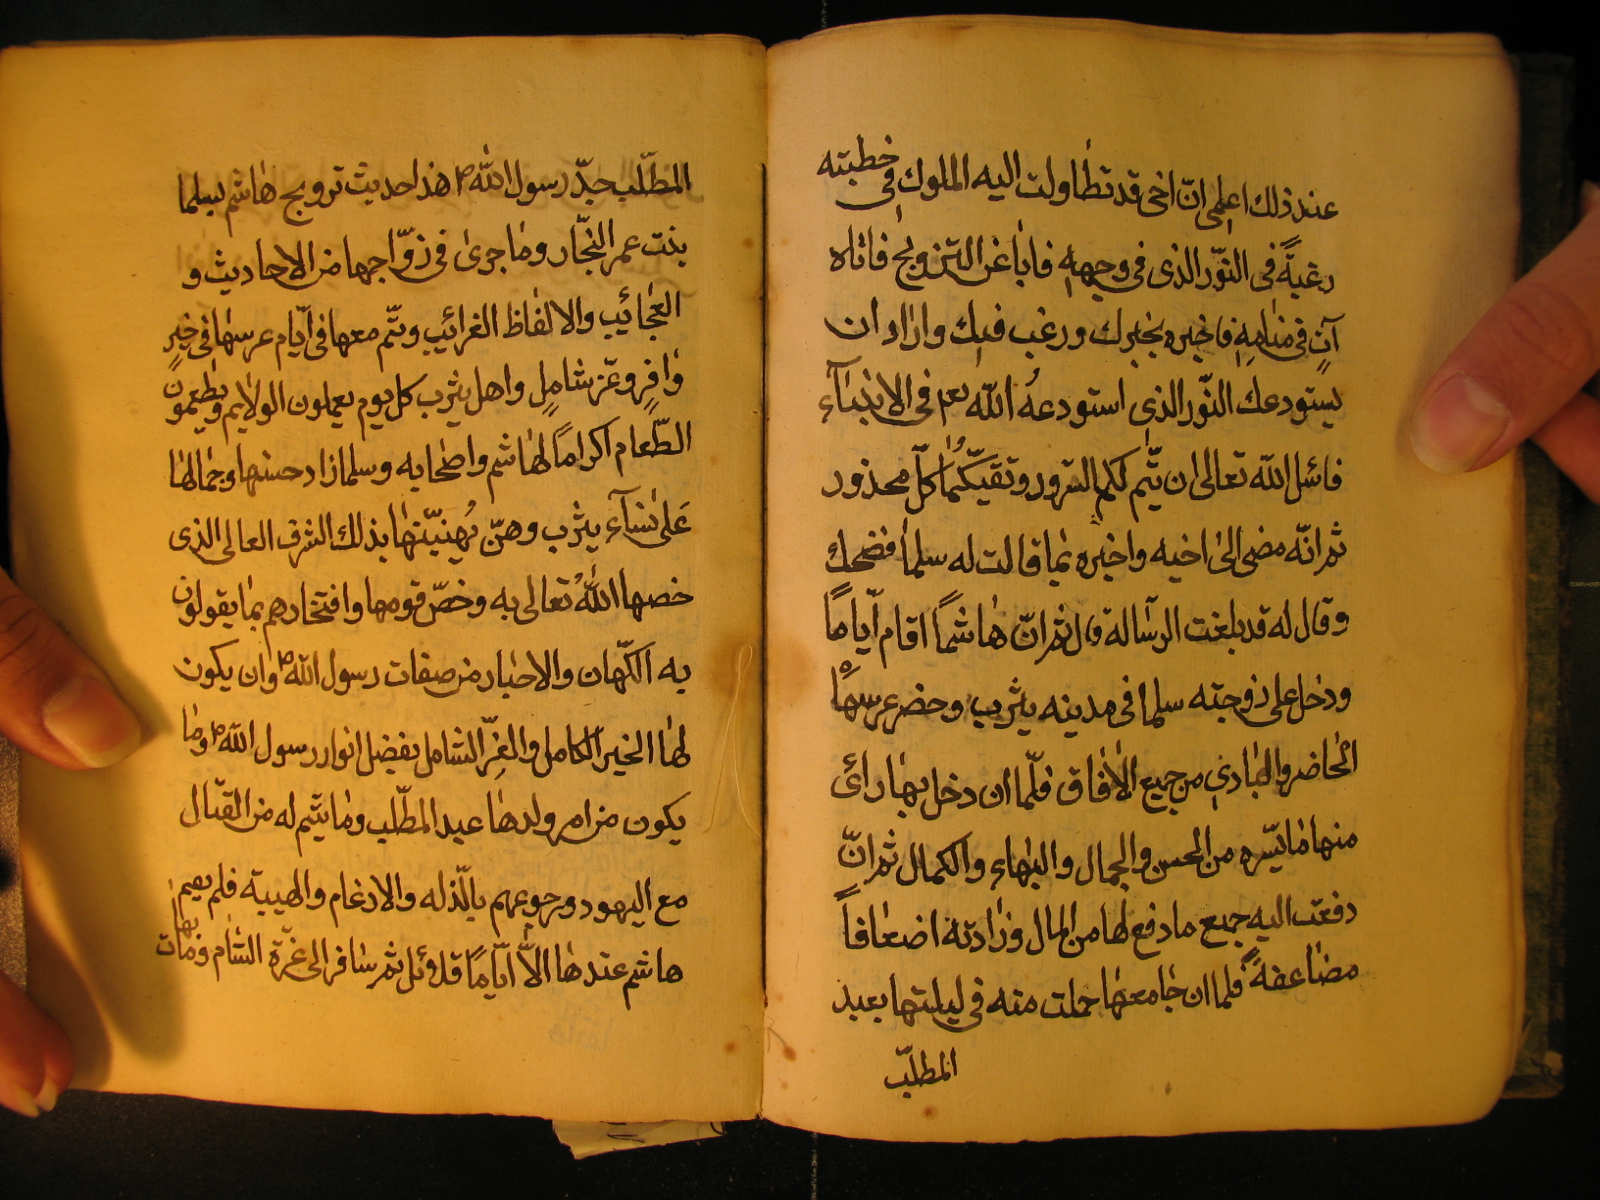 عند ذلك اعلمي انّ اخي قد تطاولت اليه الملوك في خطبته
رغبةً في النّور الذي في وجهه فابا عن التزويج فاتاه
آتٍ في منامه فاخبره بخبرك ورغب فيك واراد ان
يستودعك النّور الذي استودعه الله تعم في الانبيآء
فاسئل الله تعالى ان يتّم لكم السّرور وتقيكما كلّ محذور
ثم انّه مضى الى اخيه واخبره بما قالت له سلما فضحك
وقال له قد بلغت الرسالة قال ثم انّ هاشماً اقام آياماً
ودخل على زوجته سلما في مدينه يثرب وحضر عرسها
الحاضر والبادي من جميع الافاق فلمّا ان دخل بها رائ
منها ما يسّره من الحسن والجمال والبهاء والكمال ثم انّ
دفعت اليه جميع ما دفع لها من المال وزادته اضعافاً
مضاعفةً فلما ان جامعها حملت منه في ليلتها بعبد
المطلّب
المطلّب جدّ رسول الله ص هذا حديث تزويج هاشم بسلما
بنت عمر النجّار وما جرى في زوّاجها من الاحاديث و
العجائب والالفاظ الغرائب وتّم معها في ايّام عرسها في خيرٍ
وافرٍ وعّز شاملٍ واهل يثرب كل يوم يعملون الولايم ويطعمون
الطّعام اكراماً لهاشم واصحابه وسلما زاد حسنها وجمالها
على نسآء يثرب وهنّ يُهنيّنها بذلك الشرف العالي الذي
خصها اللهُ تعالى به وخصّ قومها وافتخارهم بما يقولون
به الكّهان والاحبار من صفات رسول الله ص وان يكون
لها الخير الكامل والعِزّ الشامل بفضل انوار رسول الله ص وما
يكون من امر ولدها عبد المطلّب وما يتّم له من القتال
مع اليهود ورجوعهم بالّذله والادغام والهيبة فلم يقم
هاشم عندها الاّ ايّاماً قلائل ثم سافر الى غزّة الشام ومات بها